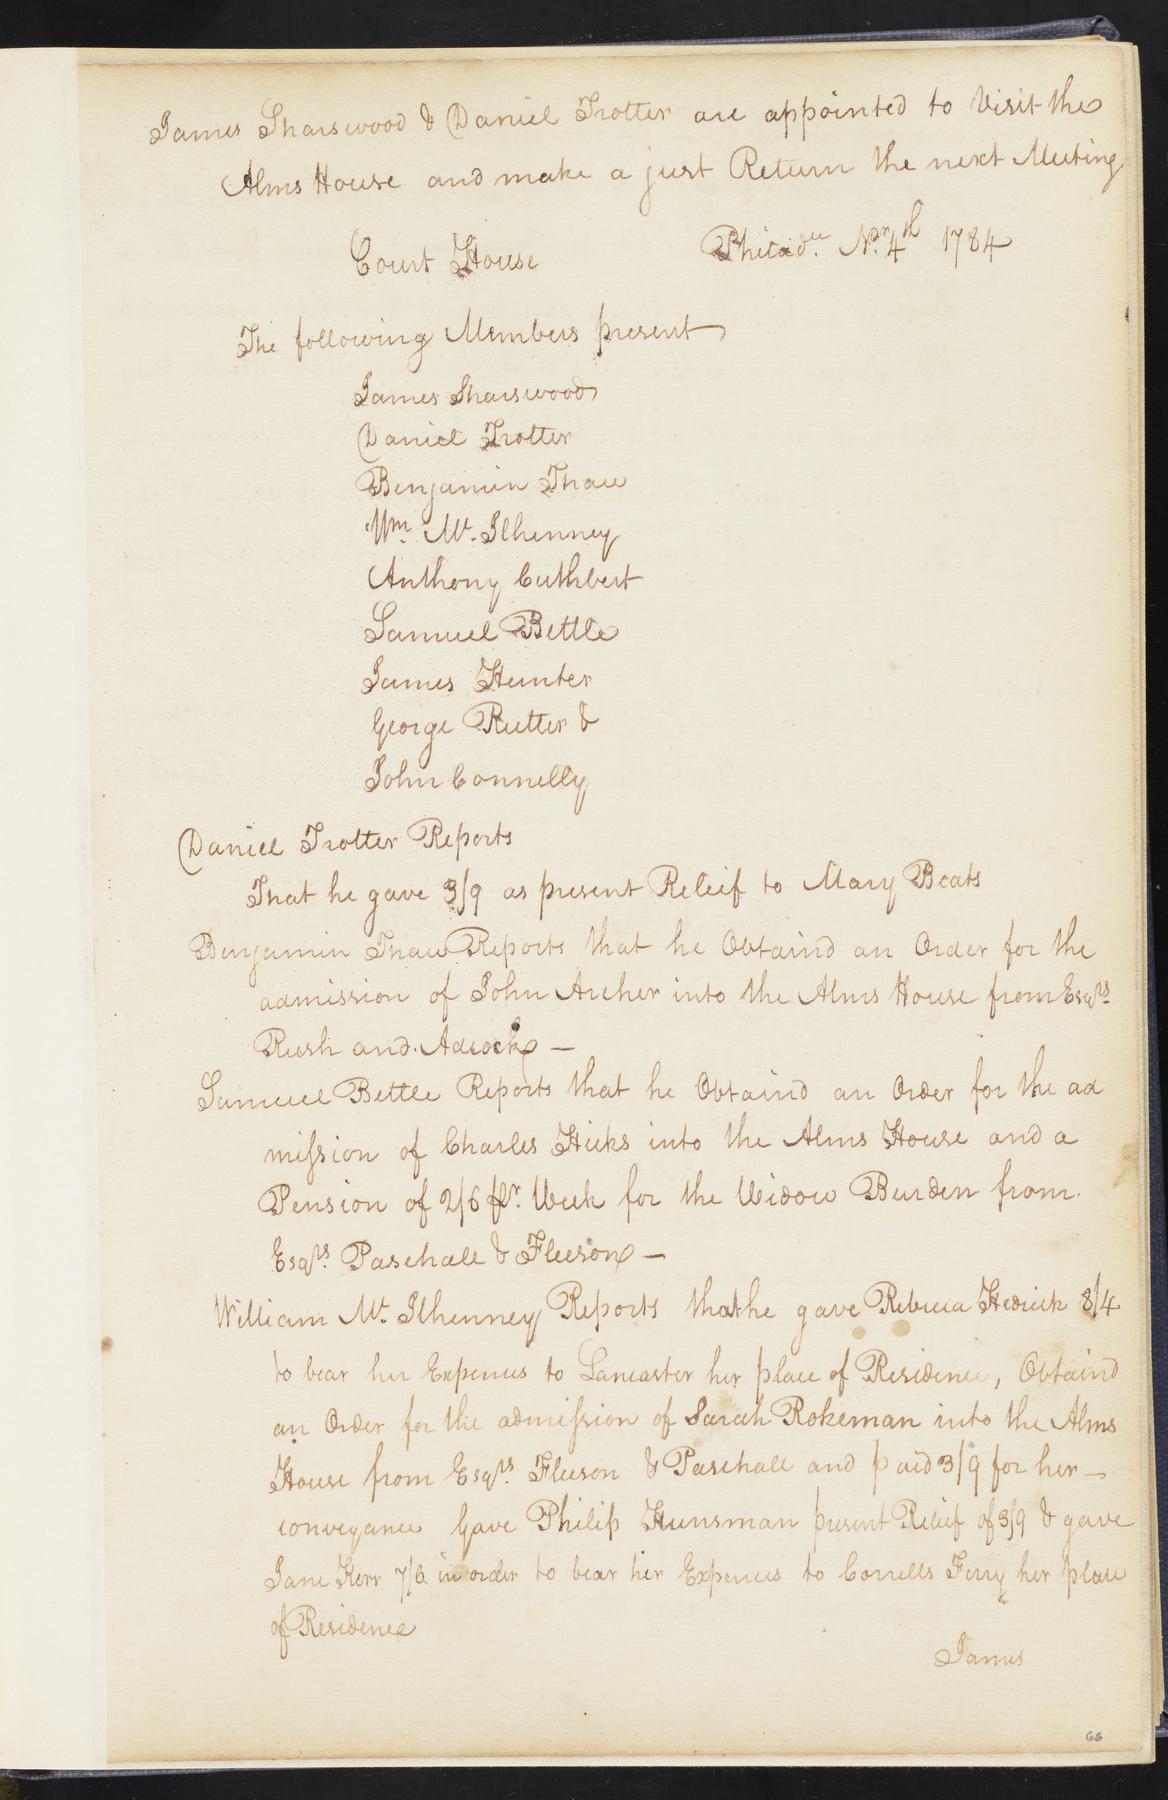 James Sharswood & Daniel Trotter are appointed to Visit the
Alms House and make a just Return the next Meeting
Court House Philad.ᵃ Nov.ʳ 4th 1784
The following Members present
James Sharswood
Daniel Trotter
Benjamin Thaw
Wm. Mc. Ilhenney
Anthony Cuthbert
Samuel Bettle
James Hunter
George Rutter &
John Connelly
Daniel Trotter Reports
That he gave 3/9 as present Releif to Mary Beats
Benjamin Thaw Reports that he Obtaind an Order for the
admission of John Archer into the Alms House from Esqrs.
Rush and Adcock —
Samuel Bettle Reports that he Obtaind an Order for the ad
mission of Charles Hicks into the Alms House and a
Pension of 2/6 Pr. Week for the Widow Burden from
Esqrs. Paschall & Fleeson —
William Mc. Ilhenney Reports that he gave Rebecca Hedrick 8/4
to bear her Expences to Lancaster her place of Residence, Obtaind
an Order for the admission of Sarah Rokeman into the Alms
House from Esqrs. Fleeson & Paschall and paid 3/9 for her —
conveyance Gave Philip Hunsman present Relief of 3/9 & gave
Jane Kerr 7/6 in order to bear her Expences to Corrells Ferry her place
of Residence
James
66